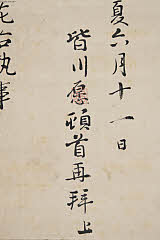 夏六月十一日
皆川愿頓首再拜上
執事